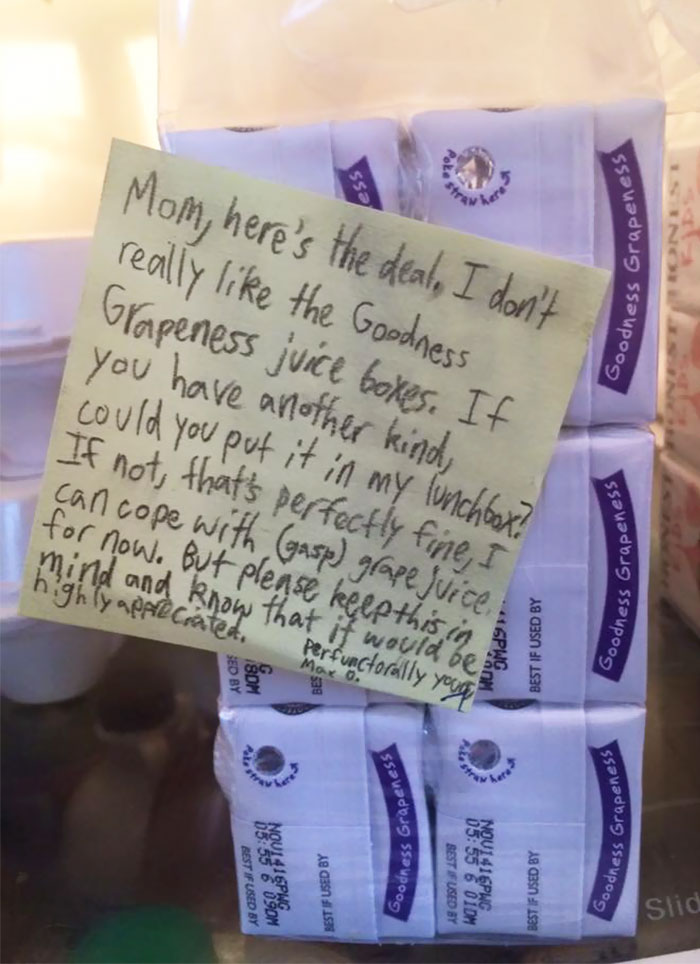 Mom, here's the deal, I don't
really like the Goodness
Grapeness juice boxes. If
you have another kind,
could you put it in my lunchbox?
If not, that's perfectly fine, I
can cope with (gasp) grape juice,
for now. But please keep this in
mind and know that it would be
highly appreciated.
Perfunctorally yours
Max O.
ess
Poke straw here
Goodness Grapeness
HONEST
Goodness Grapeness
BEST IF USED BY
Goodness Grapeness
Poke straw here
Goodness Grapeness
NOV1416PWG
05:55 6 09DM
BEST IF USED BY
BEST IF USED BY
Poke straw here
Goodness Grapeness
NOV1416PWG
05:55 6 01DM
BEST IF USED BY
BEST IF USED BY
Slid